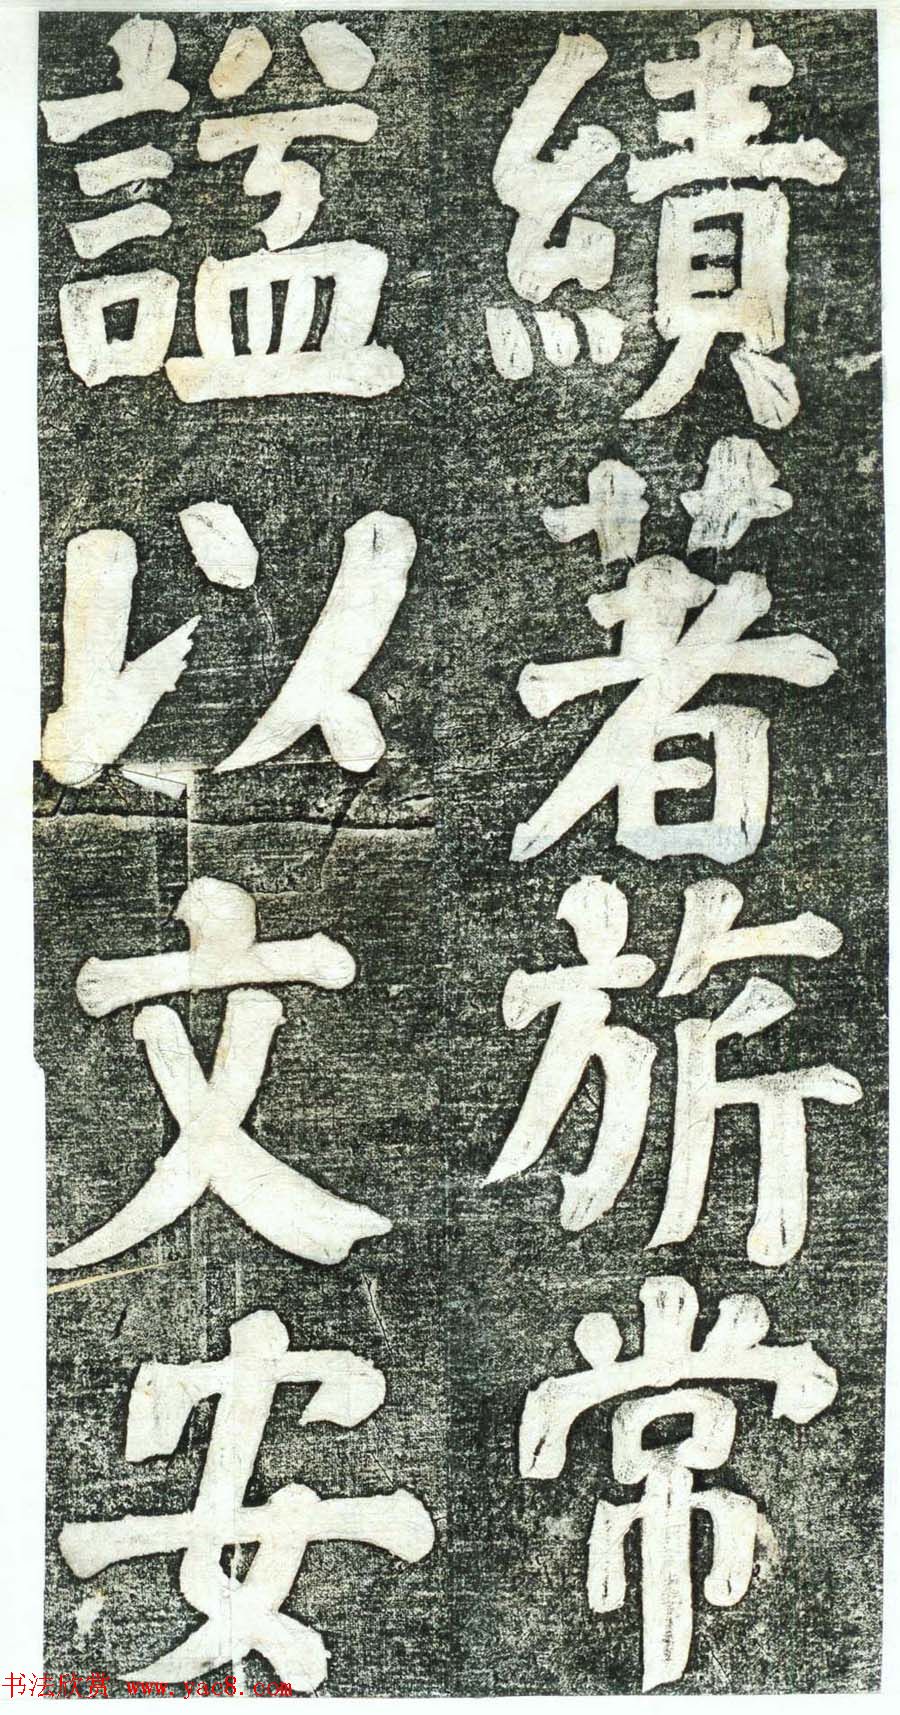 績著旂常
諡以文安
书法欣赏 www.yac8.com